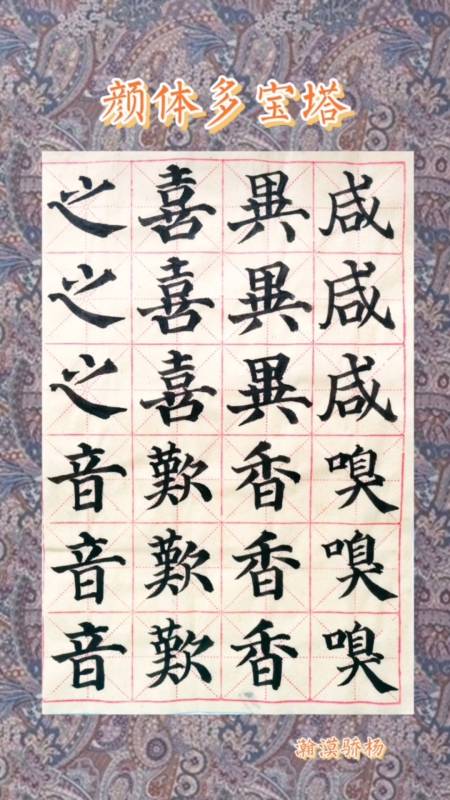 颜体多宝塔
咸咸咸嗅嗅嗅
異異異香香香
喜喜喜歎歎歎
之之之音音音
瀚漠骄杨